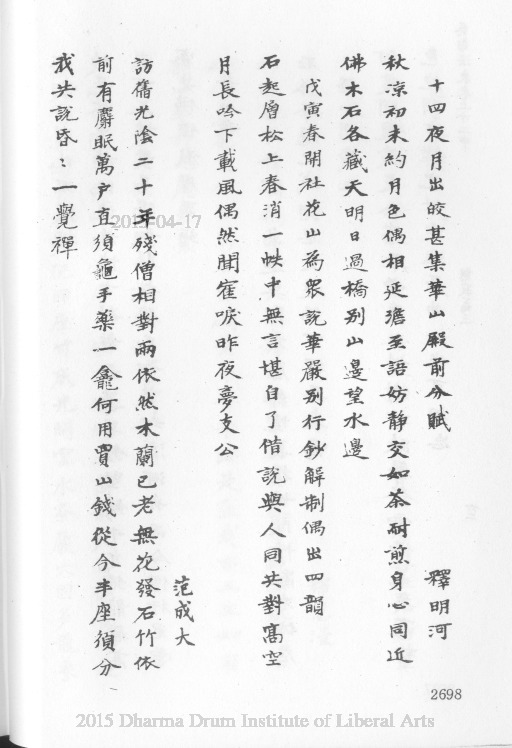 十四夜月出皎甚集華山殿前分賦　釋明河
秋凉初未約月色偶相延澹至語妨靜交如茶耐煎身心同近
佛木石各藏天明日過橋別山邊望水邊
戊寅春開社花山為衆說華嚴别行鈔解制偶出四韻
石起層松上春消一帙中無言堪自了借說與人同共對髙空
月長吟下載風偶然聞寉唳昨夜夢支公
范成大
訪舊光陰二十年殘僧相對兩依然木蘭已老無花發石竹依
前有麝眠萬户直須龜手藥一龕何用買山錢從今半座須分
我共說昏〻一覺禪
2698
2015 Dharma Drum Institute of Liberal Arts